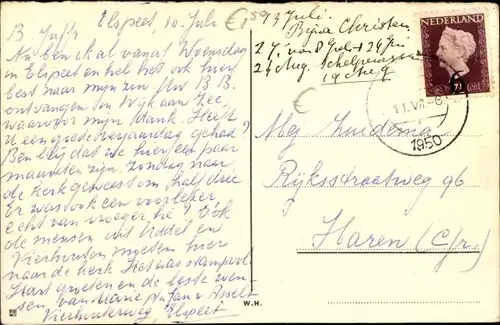 Elspeet 10 Juli
B. Juffr
Nu ben ik al vanaf Woensdag
in Elspeet en heb het ook hier
best naar mijn zin. Uw B.B.
ontvangen in Wijk aan Zee,
waarvoor mijn dank. Heeft
U een goede verjaardag gehad?
Ben blij dat we hier een paar
maanden zijn. Zondag naar
de kerk geweest om half drie
Er was ook een voorlezer
echt van vroeger hè? Ook
de mensen uit Uddel en
Vierhouten moeten hier
naar de kerk. Het was stampvol
Hart. groeten en de beste wen-
sen van
Vierhouterweg Elspeet
13 Juli
24 Aug.
19 Aug
NEDERLAND
11.VII
1950
Mej Zuidema
Rijksstraatweg 96
Haren (Gr.)
W.H.